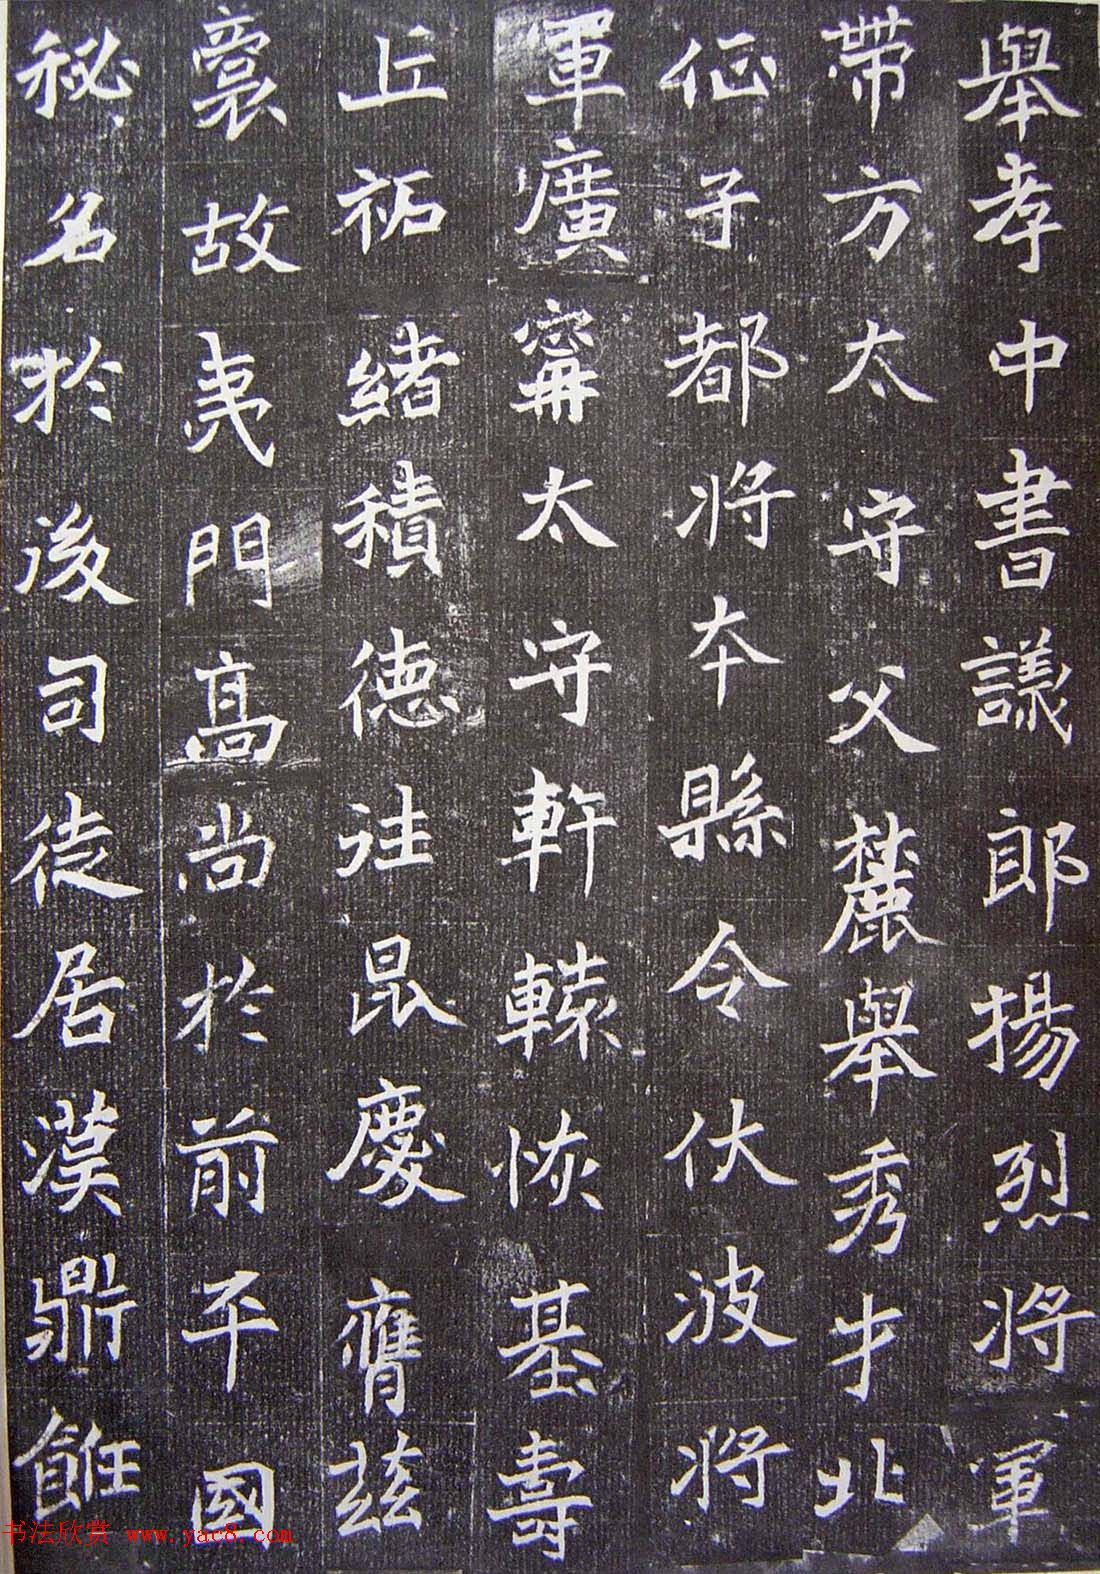 舉孝中書議郎揚烈將軍
帶方太守父麓舉秀才北
征子都將本縣令伏波將
軍廣寧太守軒轅恢基壽
丘祏緒積德洼昆慶膺茲
裔故夷門高尚於前平國
秘名於後司徒居漢鼎飪
书法欣赏 www.yac8.com